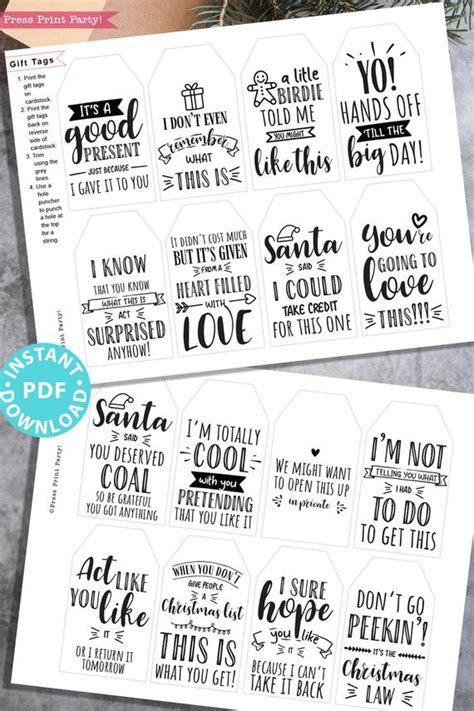 Press Print Party!
Gift Tags
1. Print the
gift tags
on
cardstock.
2. Print the
gift tags
back on
reverse
side of
cardstock.
3. Trim
using the
grey
lines.
4. Use a
hole
puncher
to punch
a hole at
the top
for a
string.
IT'S A
good
PRESENT
JUST BECAUSE
I GAVE IT TO YOU
I DON'T EVEN
remember
WHAT
THIS IS
a little
BIRDIE
TOLD ME
YOU MIGHT
like this
YO!
HANDS OFF
'TILL THE
big DAY!
I KNOW
THAT YOU KNOW
WHAT THIS IS
ACT
SURPRISED
ANYHOW!
IT DIDN'T COST MUCH
BUT IT'S GIVEN
FROM A
HEART FILLED
WITH
LOVE
Santa
SAID
I COULD
TAKE CREDIT
FOR THIS ONE
You're
GOING TO
love
THIS!!!
INSTANT
PDF
DOWNLOAD
Santa
SAID
YOU DESERVED
COAL
SO BE GRATEFUL
YOU GOT ANYTHING
I'M TOTALLY
COOL
with you
PRETENDING
THAT YOU LIKE IT
WE MIGHT WANT
TO OPEN THIS UP
in private
I'M NOT
TELLING YOU WHAT
I HAD
TO DO
TO GET THIS
©Press Print Party!
Act LIKE
YOU like
IT
OR I RETURN IT
TOMORROW
WHEN YOU DON'T
GIVE PEOPLE
A
Christmas list
THIS IS
WHAT YOU GET!
I SURE
hope
you like
IT
BECAUSE I CAN'T
TAKE IT BACK
DON'T GO
PEEKIN'!
IT'S THE
Christmas
LAW